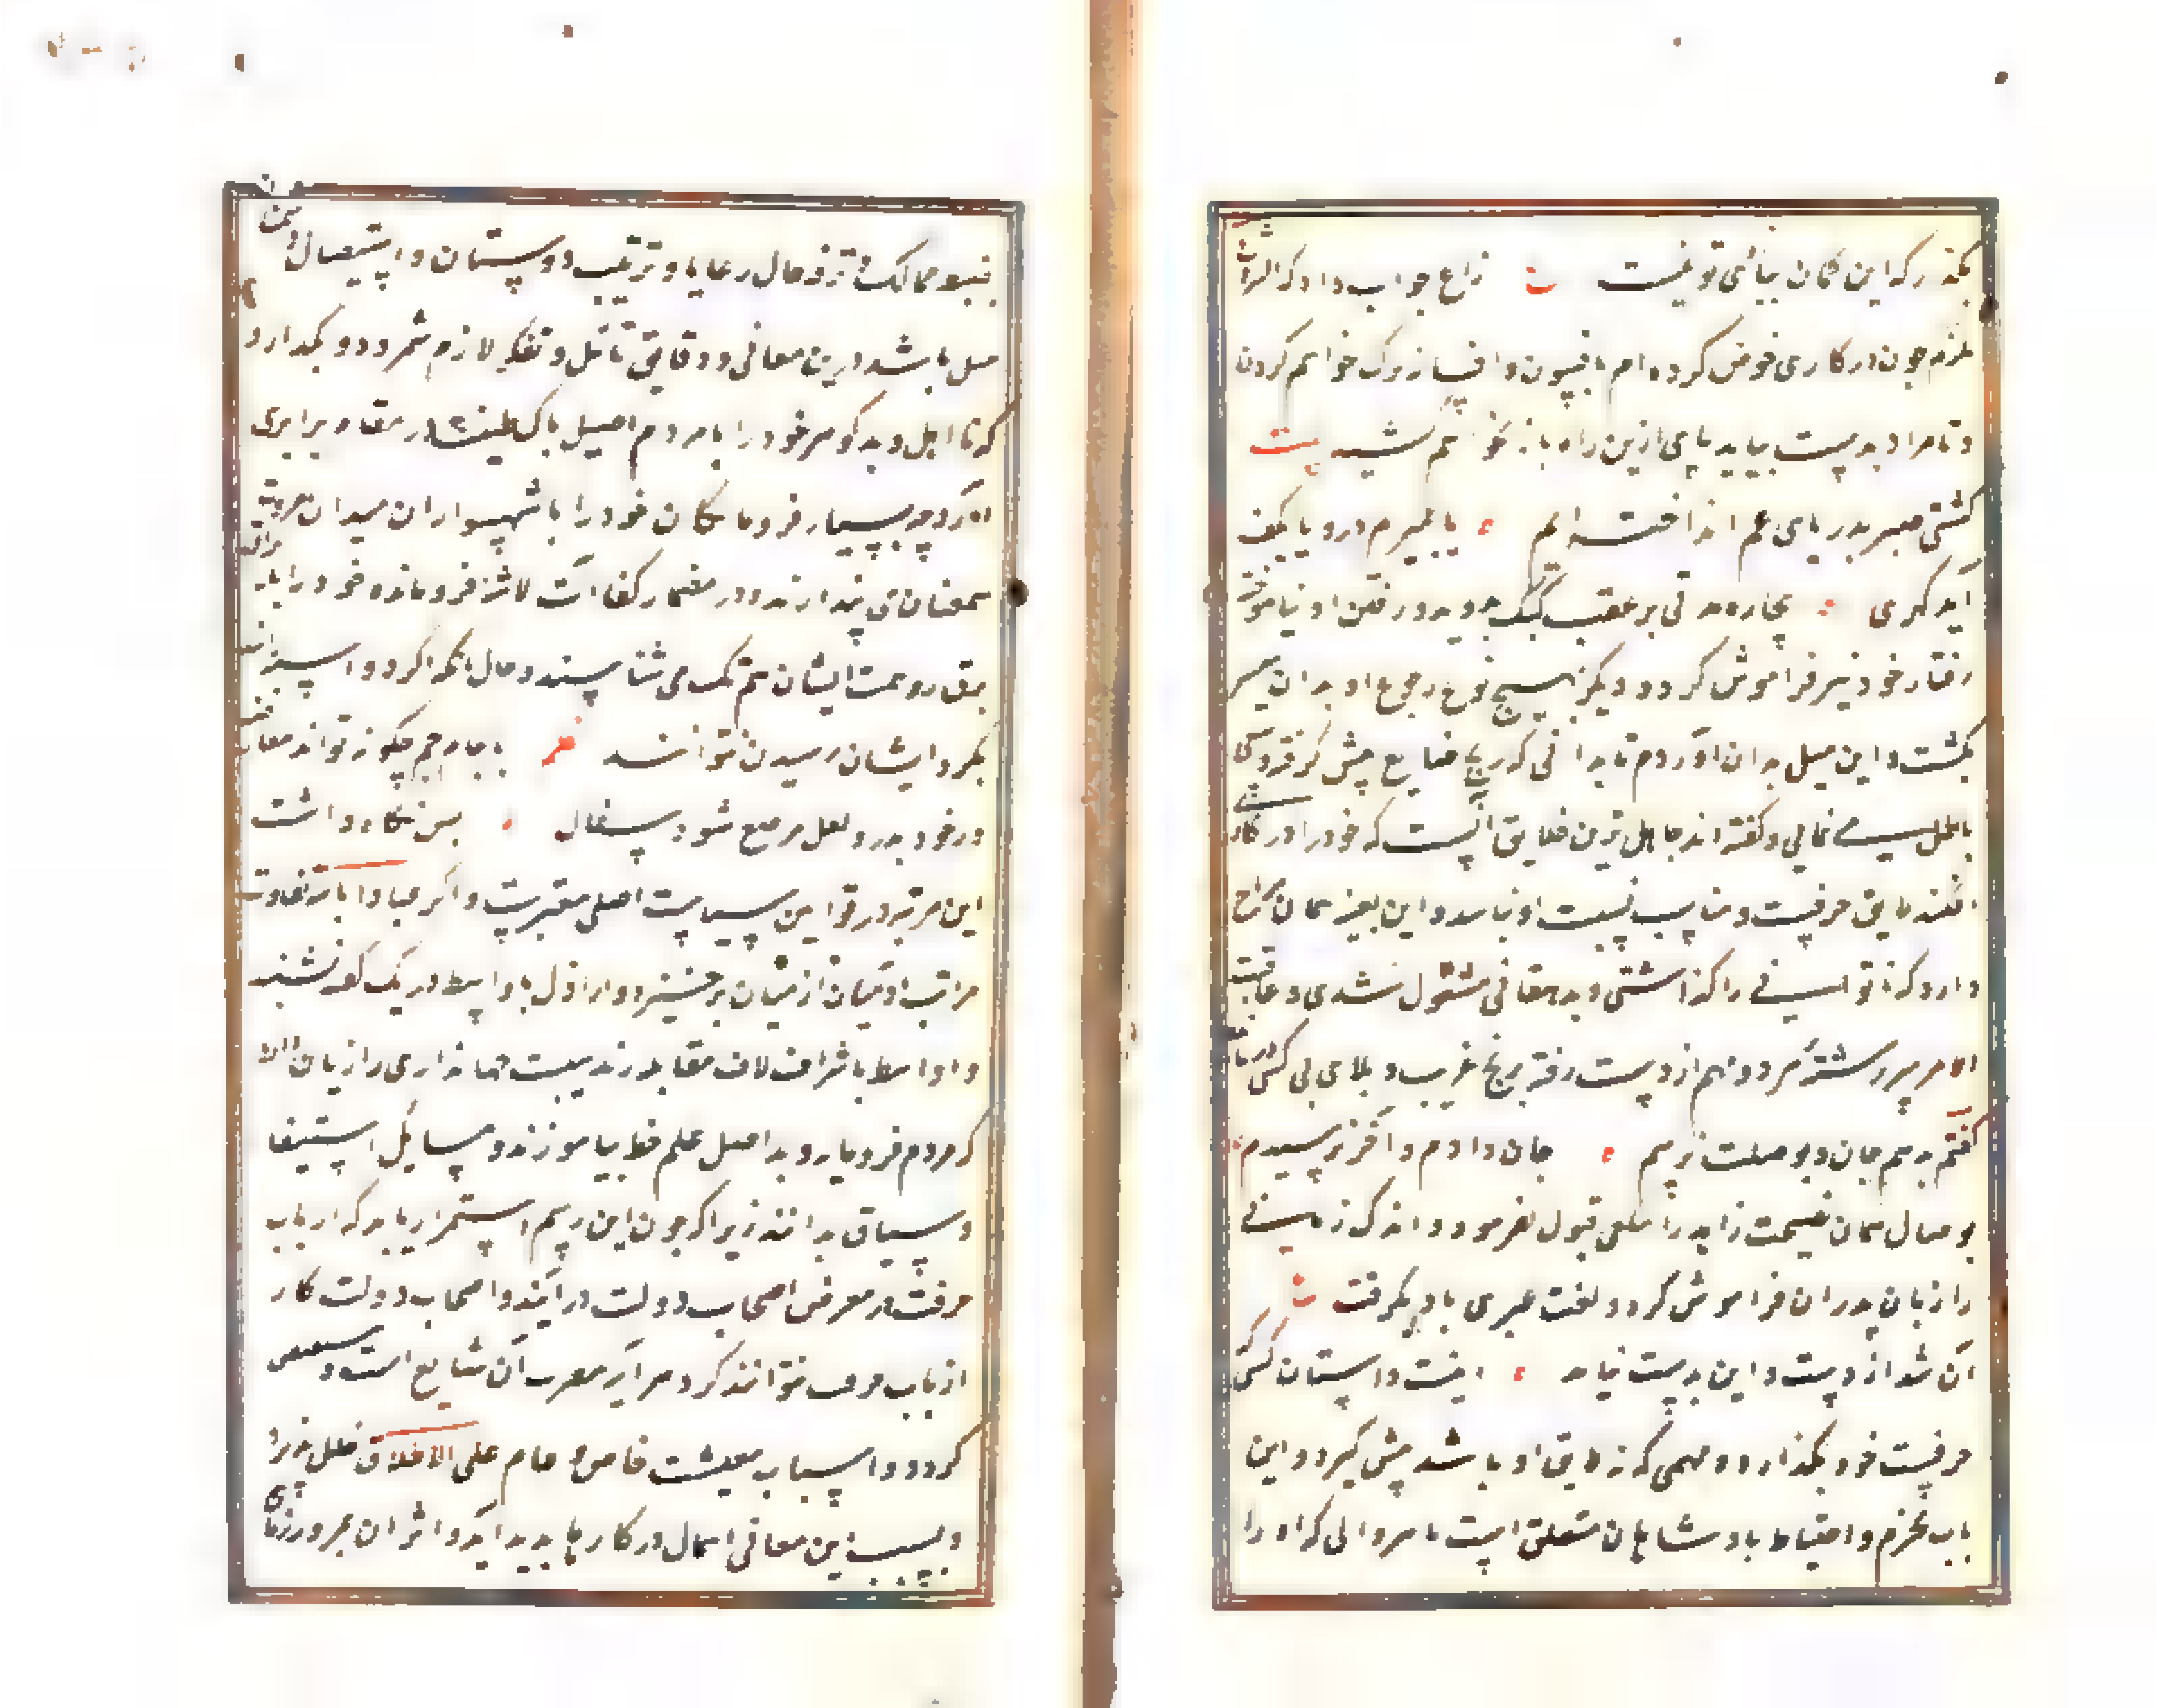 بگذر که این کمان ببازی تو نیست ت زاغ جواب داد که الشروع
ملزم چون در کاری خوض کرده ام بافسون و افسانه ترک نخواهم کردن
و تا مراد بدست نیاید پای ازین راه باز نخواهم کشید بیت
کشتی صبر بدریای غم انداخته ایم یا بمیرم درو یا بکف
آید گهری بیچاره مدتی بر عقب کبک بدوید و رفتن او نیاموخت
رفتار خود نیز فراموش کرد و دیگر بهیچ نوع رجوع او بدان میسر
نگشت و این مثل بدان آوردم تا بدانی که رنج ضایع پیش گرفتی و سعی
باطل می نمائی و گفته اند جاهل ترین خلایق آنست که خود را در کاری
افکند که لایق حرفت و مناسب نسبت او نباشد و این بعینه همان مزاج
دارد که نانوائی را گذاشتی و بدهقانی مشغول شدی و عاقبت
الامر سررشته هر دو مهم از دست رفته برنج غربت و بلای بی کسی درمانده
گفتم بدهم جان و بوصلت برسم جان دادم و آخر نرسیدم
بوصال مهمان نصیحت زاهد را بسمع قبول نفرمود و اندک زمانی
را زبان پدران فراموش کرد و لغت عبری یاد نگرفت ت
آن شد از دست و این بدست نیامد اینست داستان کسی که
حرفت خود بگذارد و مهمی که نه لایق او باشد پیش گیرد و این
باب بحزم و احتیاط پادشاهان متعلق است تا هر والی که او را
بضبط ممالک و ترفه حال رعایا و تربیت دوستان و استیصال دشمن
میل باشد درین معانی و دقایق تأمل و تفکر لازم شمرد و نگذارد
که نااهل و بد گوهر خود را با مردم اصیل پاک طینت در مقام برابری
آرد چه بسیار فرومایگان خود را با شهسواران میدان مروت
همعنان می پندارند و در مضمار کفائت لاشه فرومانده خود را با براق
برق رو همت ایشان هم تک می شناسند و حال آنکه اگر دو اسبه تازند
بگرد ایشان رسیدن نتوانند با ماه جرم چگونه تواند مقابل
در خود بدر و لعل مرصع شود سفال پس نگاه داشت
این مرتبه در قوانین سیاست اصلی معتبرست و اگر عیاذا بالله تفاوت
مراتب آدمیان از میان برخیزد و اراذل با اواسط در یک کفه نشینند
و اواسط با اشراف لاف مقابله زنند هیبت جهانداری را زیان دارد
که مردم فرومایه و بد اصل علم خط بیاموزند و مسایل استیفا
و سیاق بدانند زیرا که چون این رسم استمرار یابد که ارباب
حرفت در معرض اصحاب دولت درآیند و اصحاب دولت کار
ارباب حرف نتوانند کرد هر آینه مضرت آن شایع
گردد و اسباب معیشت خاص و عام علی الاطلاق خلل پذیرد
و بسبب این معانی اهمال در کارها پدید آید و اثر آن بمرور روزگار